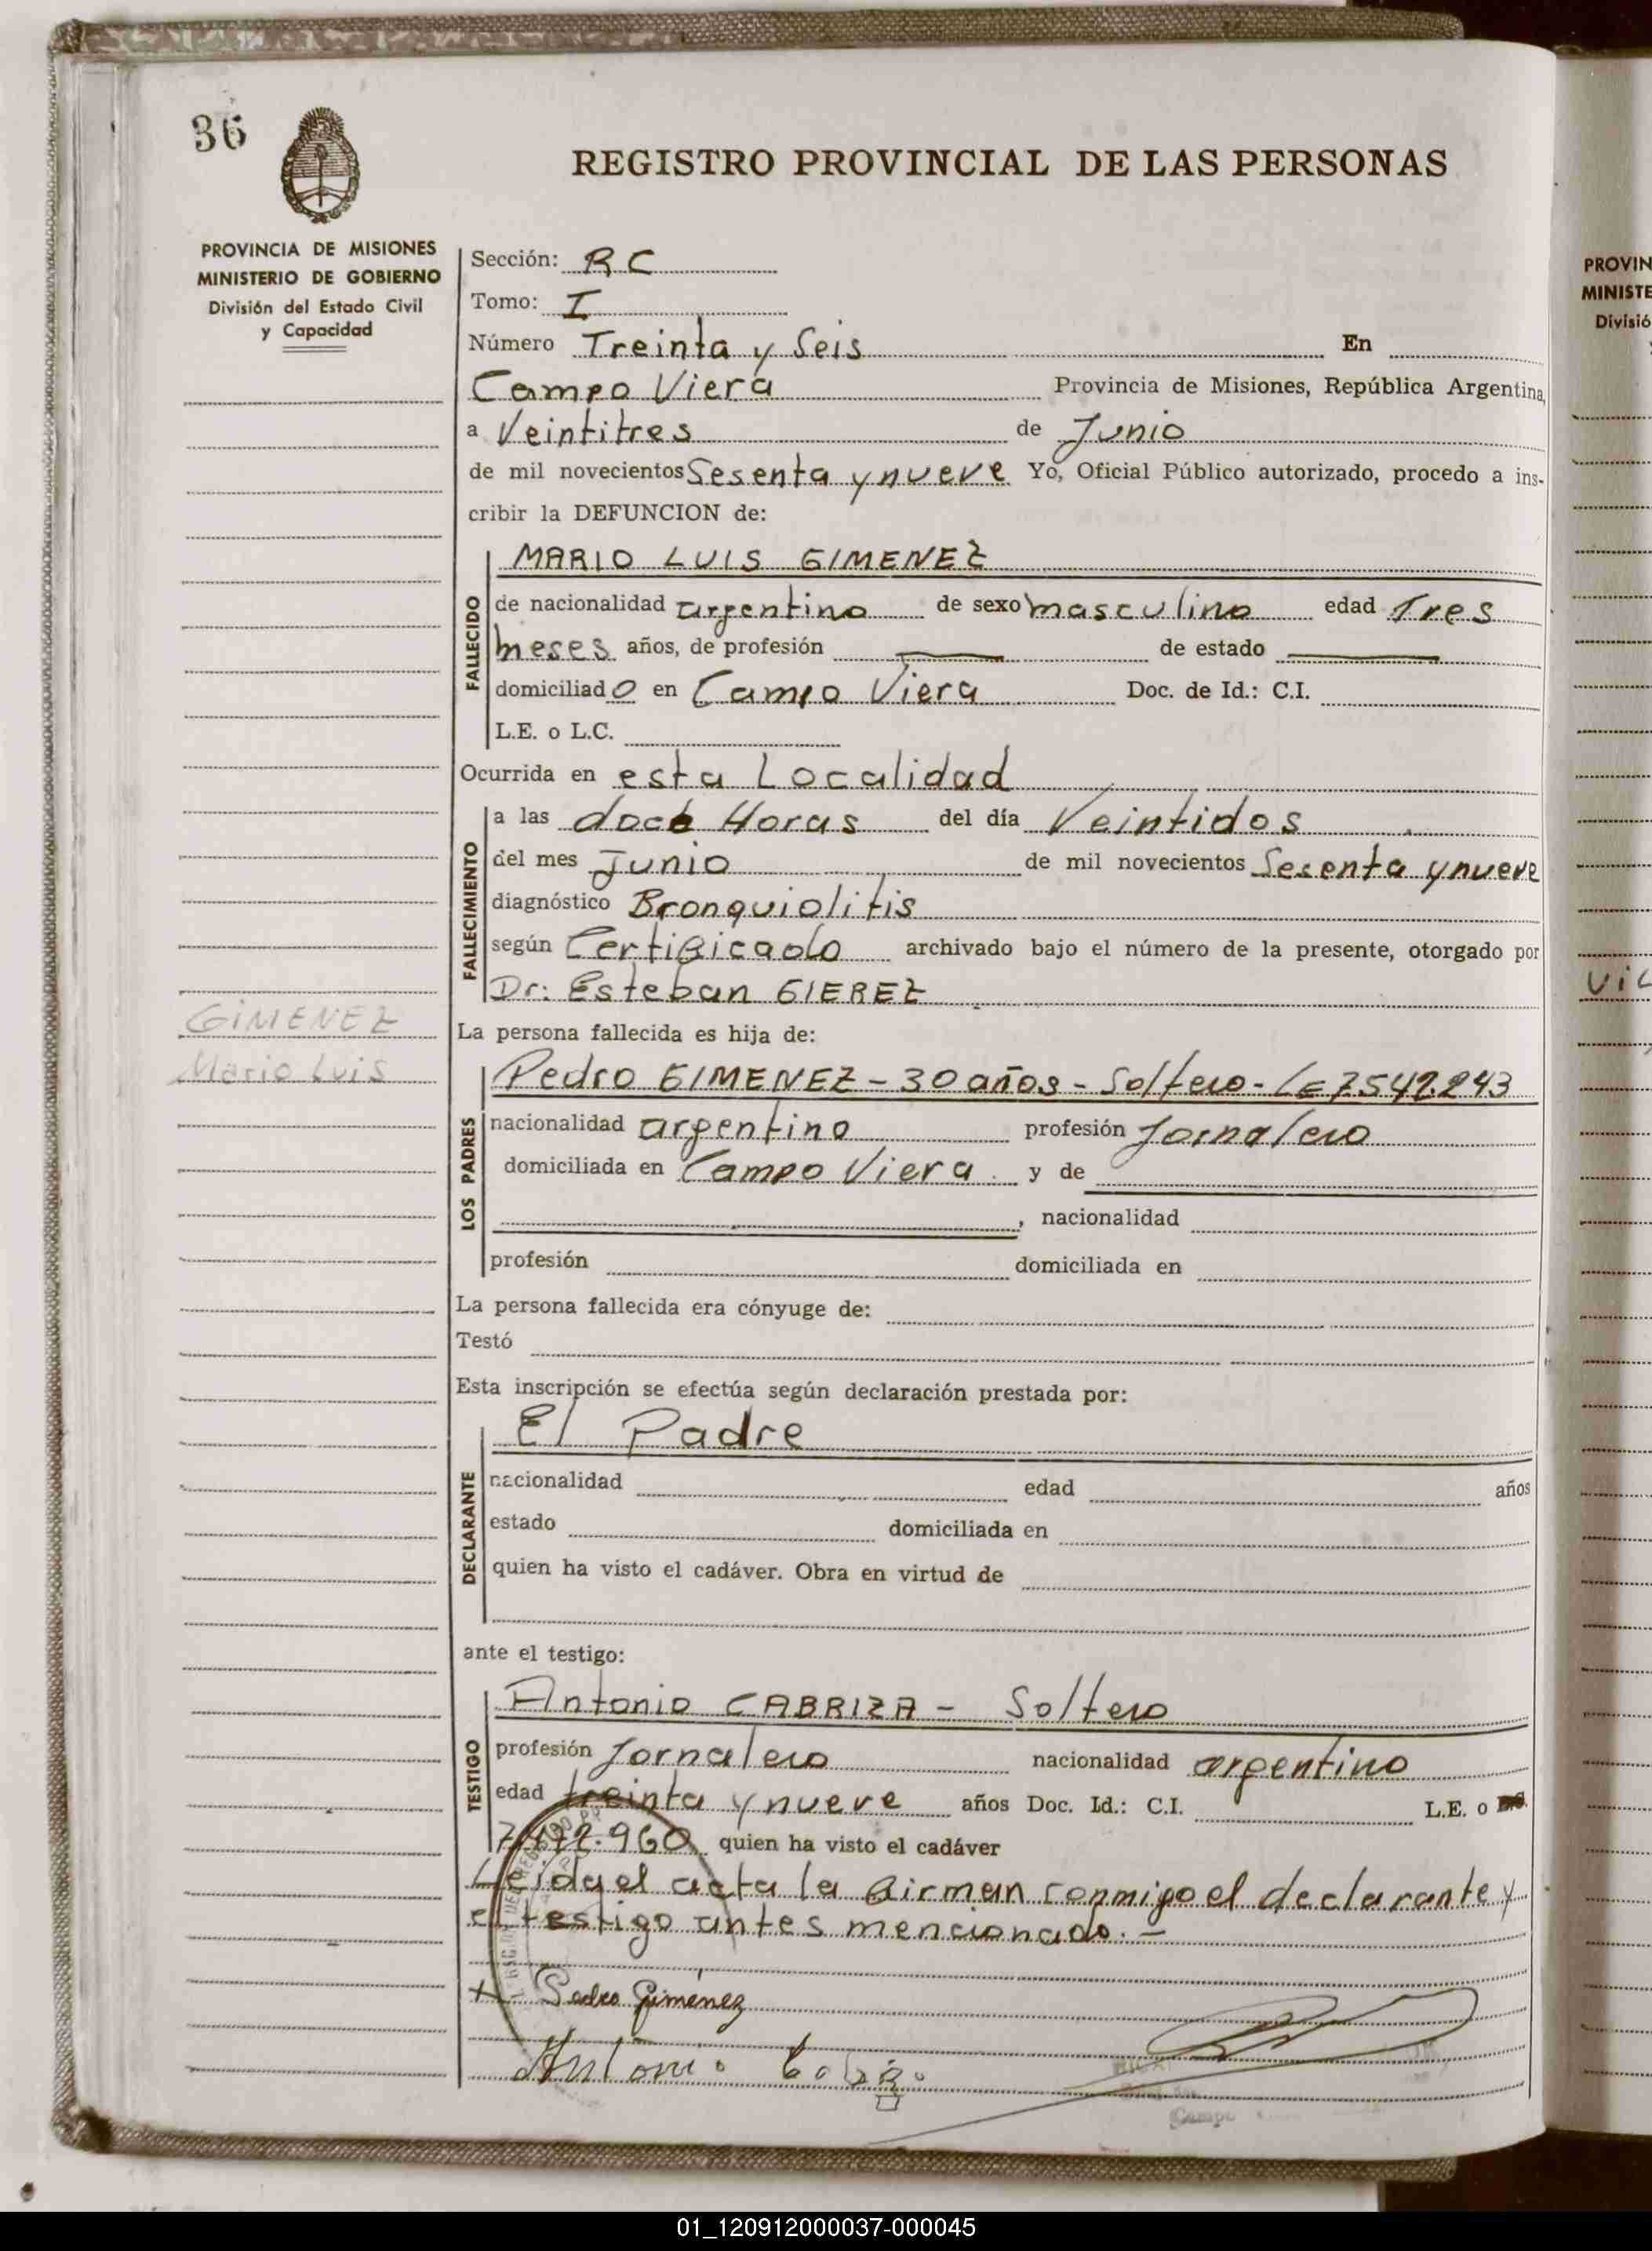 36
REGISTRO PROVINCIAL DE LAS PERSONAS
PROVINCIA DE MISIONES
MINISTERIO DE GOBIERNO
División del Estado Civil
y Capacidad
Sección: RC
Tomo: I
Número Treinta y Seis En
Campo Viera Provincia de Misiones, República Argentina,
a Veintitres de Junio
de mil novecientos Sesenta y nueve Yo, Oficial Público autorizado, procedo a ins-
cribir la DEFUNCION de:
FALLECIDO
MARIO LUIS GIMENEZ
de nacionalidad argentino de sexo masculino edad Tres
meses años, de profesión de estado
domiciliado en Campo Viera Doc. de Id.: C.I.
L.E. o L.C.
Ocurrida en esta Localidad
FALLECIMIENTO
a las doce Horas del día Veintidos
del mes Junio de mil novecientos Sesenta y nueve
diagnóstico Bronquiolitis
según Certificado archivado bajo el número de la presente, otorgado por
Dr: Esteban GIEREZ
GIMENEZ
Mario Luis
La persona fallecida es hija de:
LOS PADRES
Pedro GIMENEZ - 30 años - Soltero - LE 7.542.243
nacionalidad argentino profesión Jornalero
domiciliada en Campo Viera y de
, nacionalidad
profesión domiciliada en
La persona fallecida era cónyuge de:
Testó
Esta inscripción se efectúa según declaración prestada por:
DECLARANTE
El Padre
nacionalidad edad años
estado domiciliada en
quien ha visto el cadáver. Obra en virtud de
ante el testigo:
TESTIGO
Antonio CABRIZA - Soltero
profesión Jornalero nacionalidad argentino
edad treinta y nueve años Doc. Id.: C.I. L.E. o
960 quien ha visto el cadáver
Leida el acta la firman conmigo el declarante y
el testigo antes mencionado. -
Pedro Gimenez
Antonio
Campo
PROVIN
MINISTE
Divisió
01_120912000037-000045